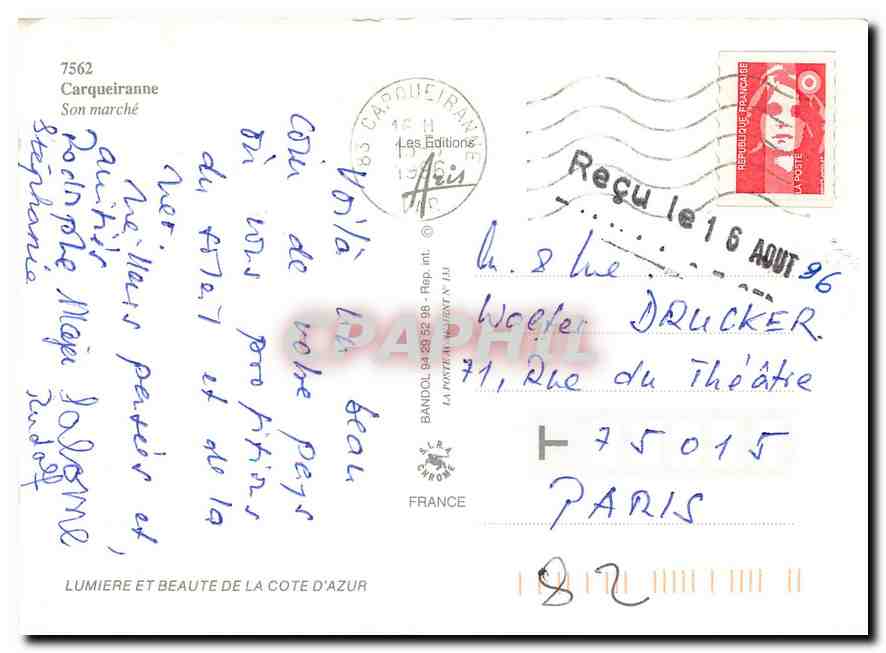 7562
Carqueiranne
Son marché
Voilà un beau
coin de votre pays
où nous profitions
du soleil et de la
mer.
Meilleurs pensées et
amitiés
Rodolphe Maja Salomé
Stéphanie Rudolf
LUMIERE ET BEAUTE DE LA COTE D'AZUR
83 CARQUEIRANNE
16 H
1996
VAR
Les Editions
Aris
BANDOL 94 29 52 98 - Rep. int. ©
LA POSTE AVAUMENT N° 133
S.I.R.A.
CHROME
FRANCE
REPUBLIQUE FRANÇAISE
LA POSTE
Reçu le 16 AOUT 96
M. & Mme
Walter DRUCKER
71, Rue du Théâtre
75015
PARIS
82
CPAPHIL